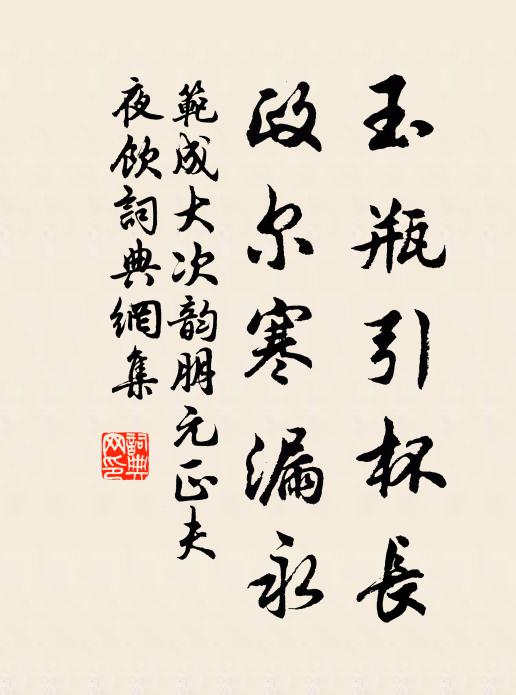 玉瓶引杯長
政尔寒漏永
範成大次韵朋元正夫
夜飲詞典網集
詞典
网印